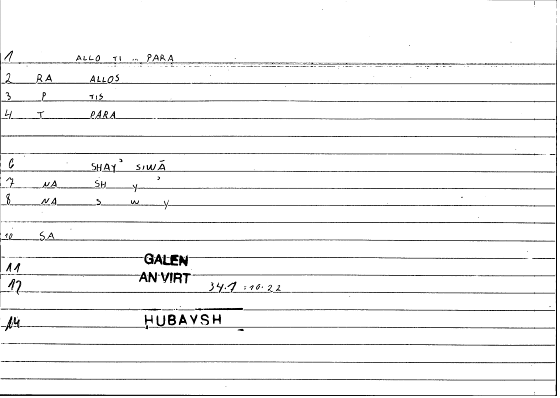 1 ALLO TI .. PARA
2 RA ALLOS
3 P TIS
4 T PARA
6 SHAY' SIWĀ
7 NA SH y '
8 NA S w y
10 SA
11 GALEN
12 AN VIRT 34.1 = 10.22
14 HUBAYSH